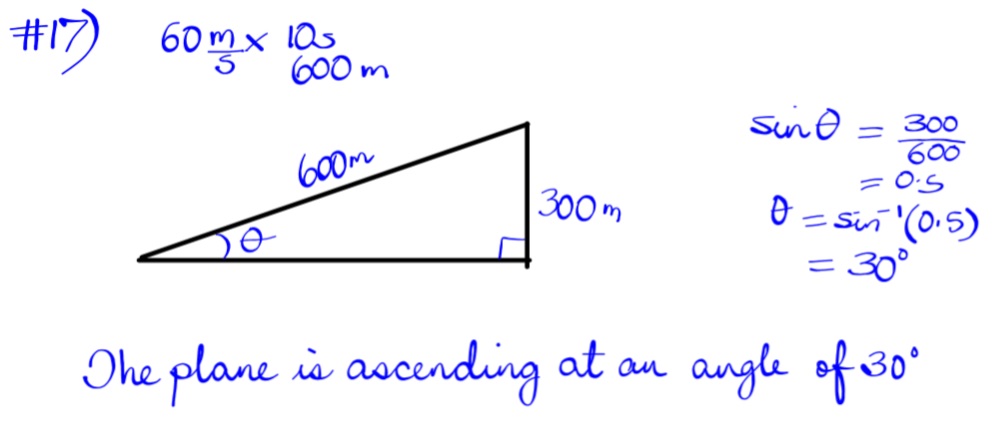 #17) 60 m/s × 10s
600 m
600m
300 m
θ
sin θ = 300/600
= 0.5
θ = sin⁻¹(0.5)
= 30°
The plane is ascending at an angle of 30°